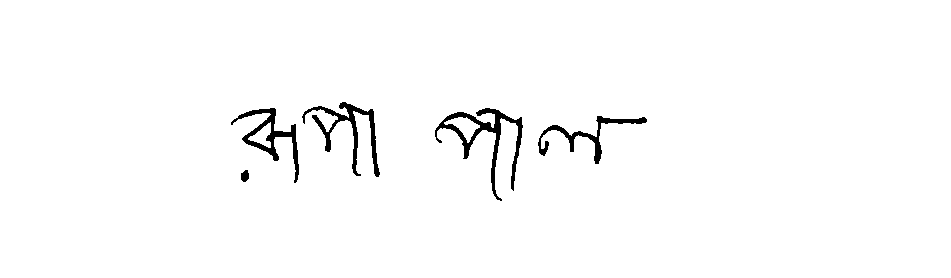 রূপা পাল